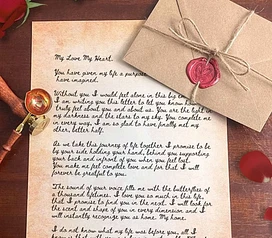 My Love My Heart.
You have given my life a purpose
have imagined.
Without you I would feel alone in this big
I am writing you this letter to let you know
truly feel about you and about us. You are the light
my darkness and the stars to my sky. You complete me
in every way. I am so glad to have finally met my
other, better half.
As we take this journey of life together I promise to be
by your side, holding your hand, behind you supporting
your back and infront of you when you feel
You make me feel complete love and for that I will
forever be grateful to you.
The sound of your voice fills me with the butterflies of
a thousand lifetimes. I love you so much in this life,
that I promise to find you in the next. I will look for
the scent and shape of you in every dimension and I
will instantly recognize you as home. My home.
I do not know what my life was before you, all I